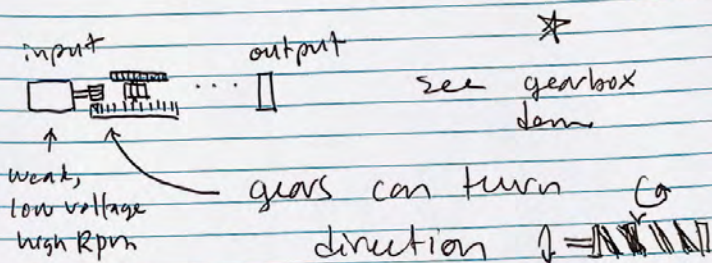 input
output
see gearbox
demo
weak,
low voltage
high Rpm
gears can turn
direction